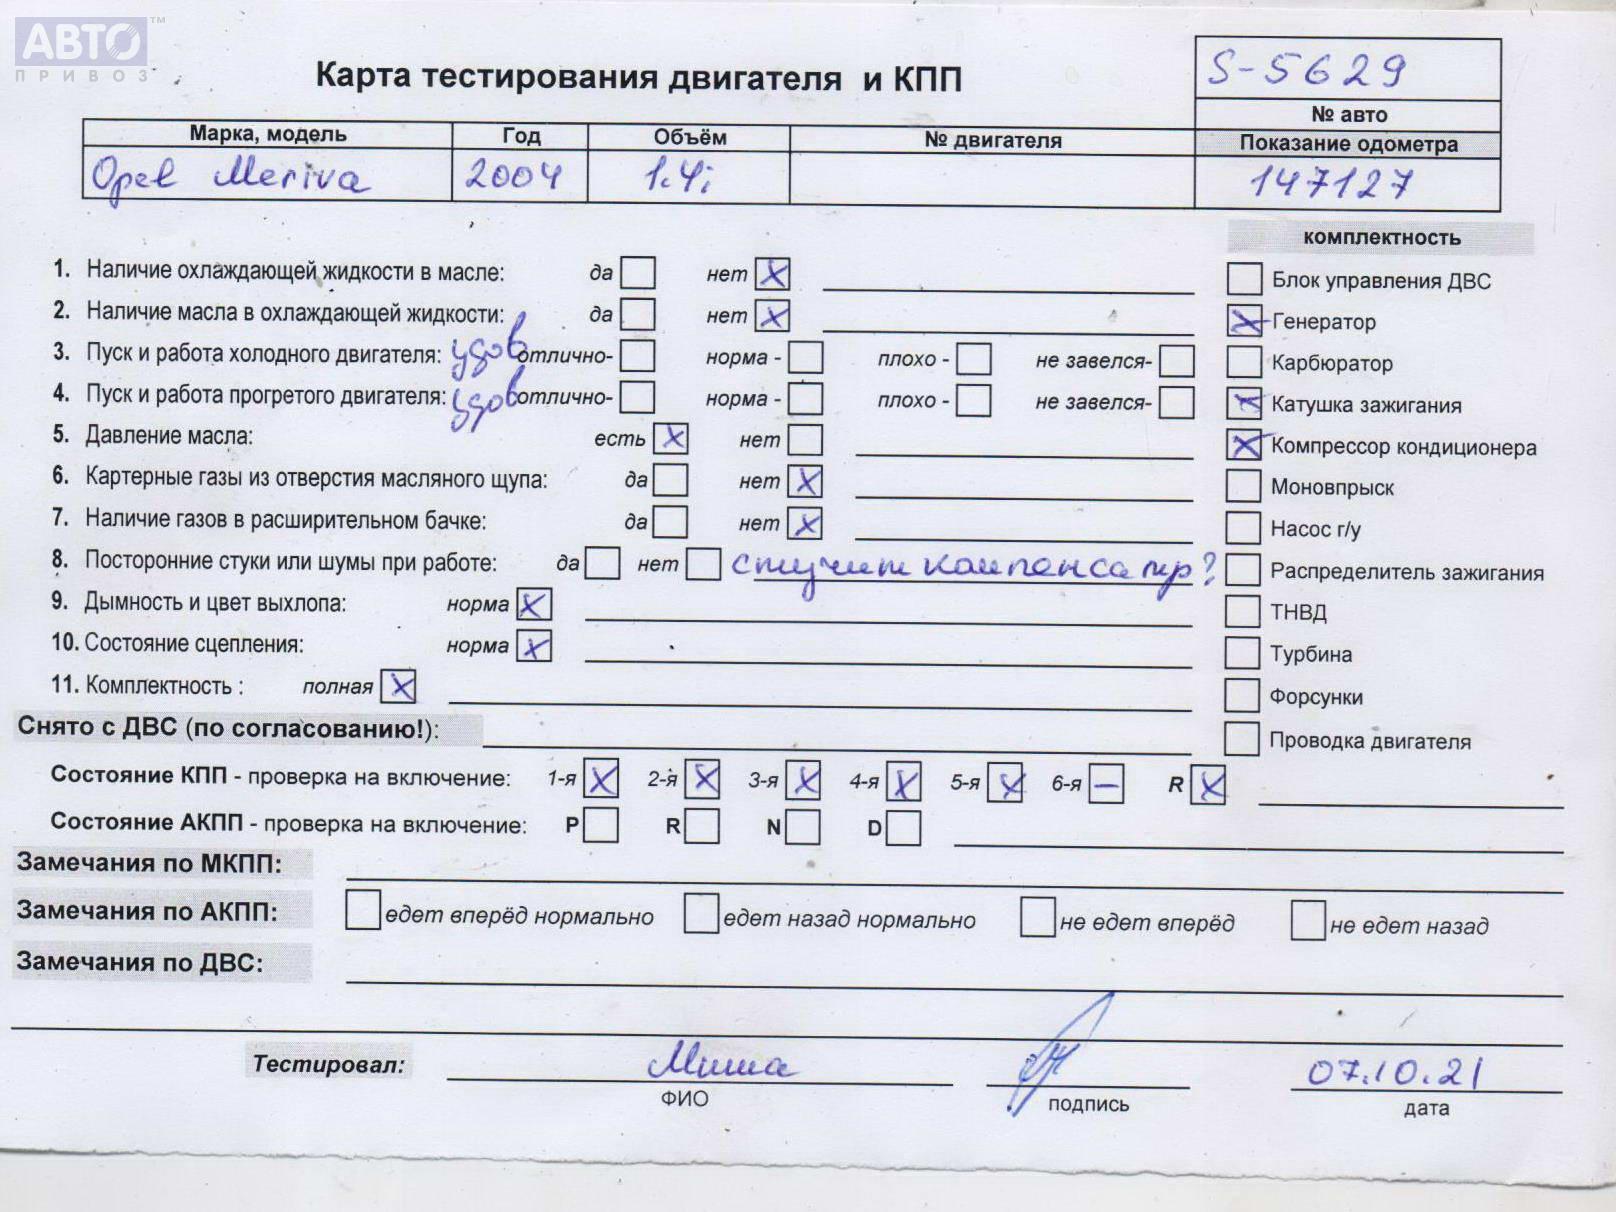 АВТО™
ПРИВОЗ
Карта тестирования двигателя и КПП
S-5629
№ авто
Марка, модель Год Объём № двигателя Показание одометра
Opel Meriva 2004 1.4i 147127
комплектность
1. Наличие охлаждающей жидкости в масле: да нет X
Блок управления ДВС
2. Наличие масла в охлаждающей жидкости: да нет X
X Генератор
3. Пуск и работа холодного двигателя: удов отлично- норма - плохо - не завелся-
Карбюратор
4. Пуск и работа прогретого двигателя: удов отлично- норма - плохо - не завелся-
X Катушка зажигания
5. Давление масла: есть X нет
X Компрессор кондиционера
6. Картерные газы из отверстия масляного щупа: да нет X
Моновпрыск
7. Наличие газов в расширительном бачке: да нет X
Насос г/у
8. Посторонние стуки или шумы при работе: да нет стучит компенсатр?
Распределитель зажигания
9. Дымность и цвет выхлопа: норма X
ТНВД
10. Состояние сцепления: норма X
Турбина
11. Комплектность : полная X
Форсунки
Снято с ДВС (по согласованию!):
Проводка двигателя
Состояние КПП - проверка на включение: 1-я X 2-я X 3-я X 4-я X 5-я X 6-я – R X
Состояние АКПП - проверка на включение: P R N D
Замечания по МКПП:
Замечания по АКПП: едет вперёд нормально едет назад нормально не едет вперёд не едет назад
Замечания по ДВС:
Тестировал: Миша 07.10.21
ФИО подпись дата